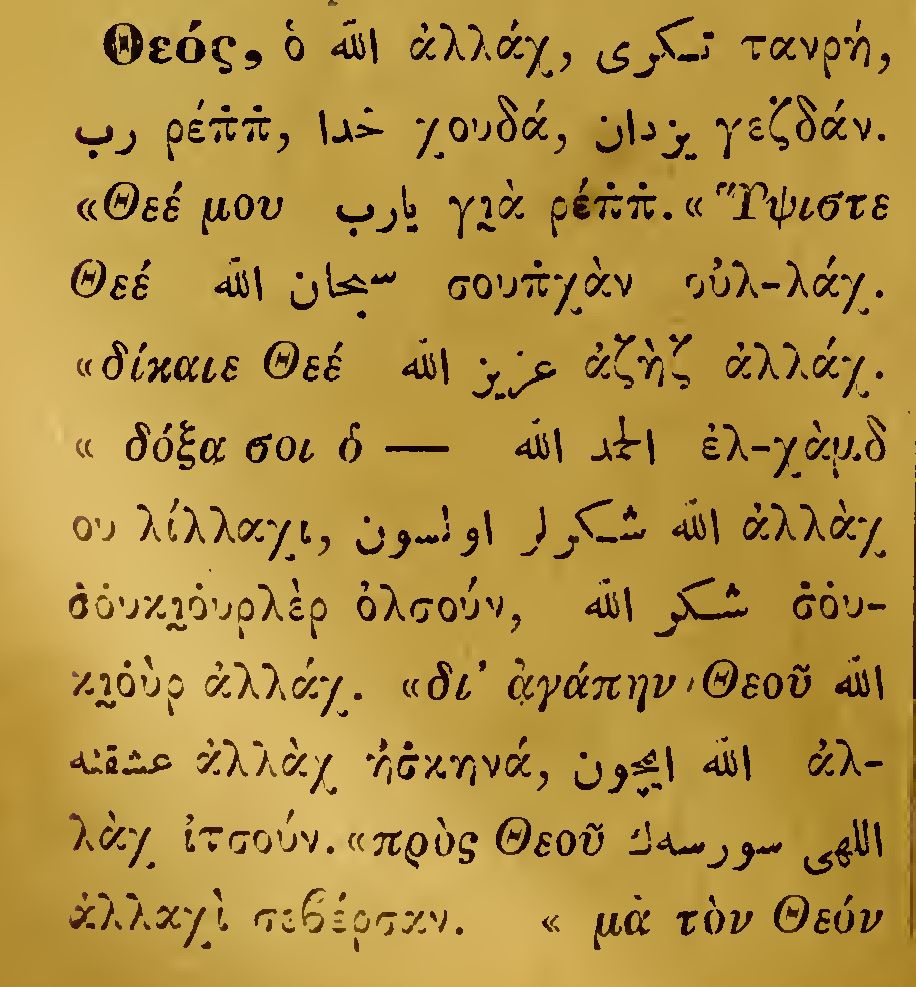 Θεός, ὁ الله ἀλλάχ, تـكری τανρή,
رب ρέπ̇π̇, خدا χουδά, یزدان γεζδάν.
«Θεέ μου یارب γιὰ ρέπ̇π̇. « Ὕψιστε
Θεέ سبحان الله σουπ̇χὰν οὐλ-λάχ.
«δίκαιε Θεέ عزیز الله ἀζὴζ ἀλλάχ.
« δόξα σοι ὁ — الحمد الله ἐλ-χὰμδ
ου λίλλαχι, الله شكرلر اولسون ἀλλὰχ
σ̇ο̇υκιο̇υρλὲρ ὀλσούν, شكر الله σ̇ο̇υ-
κιο̇ὺρ ἀλλάχ. «δι’ ἀγάπην Θεοῦ الله
عشقنه ἀλλὰχ ἠσ̇κηνά, الله ایچون ἀλ-
λὰχ ἰτσούν. «πρὸς Θεοῦ اللهی سورسهك
ἀλλαχὶ σεβέρσαν. « μὰ τὸν Θεόν